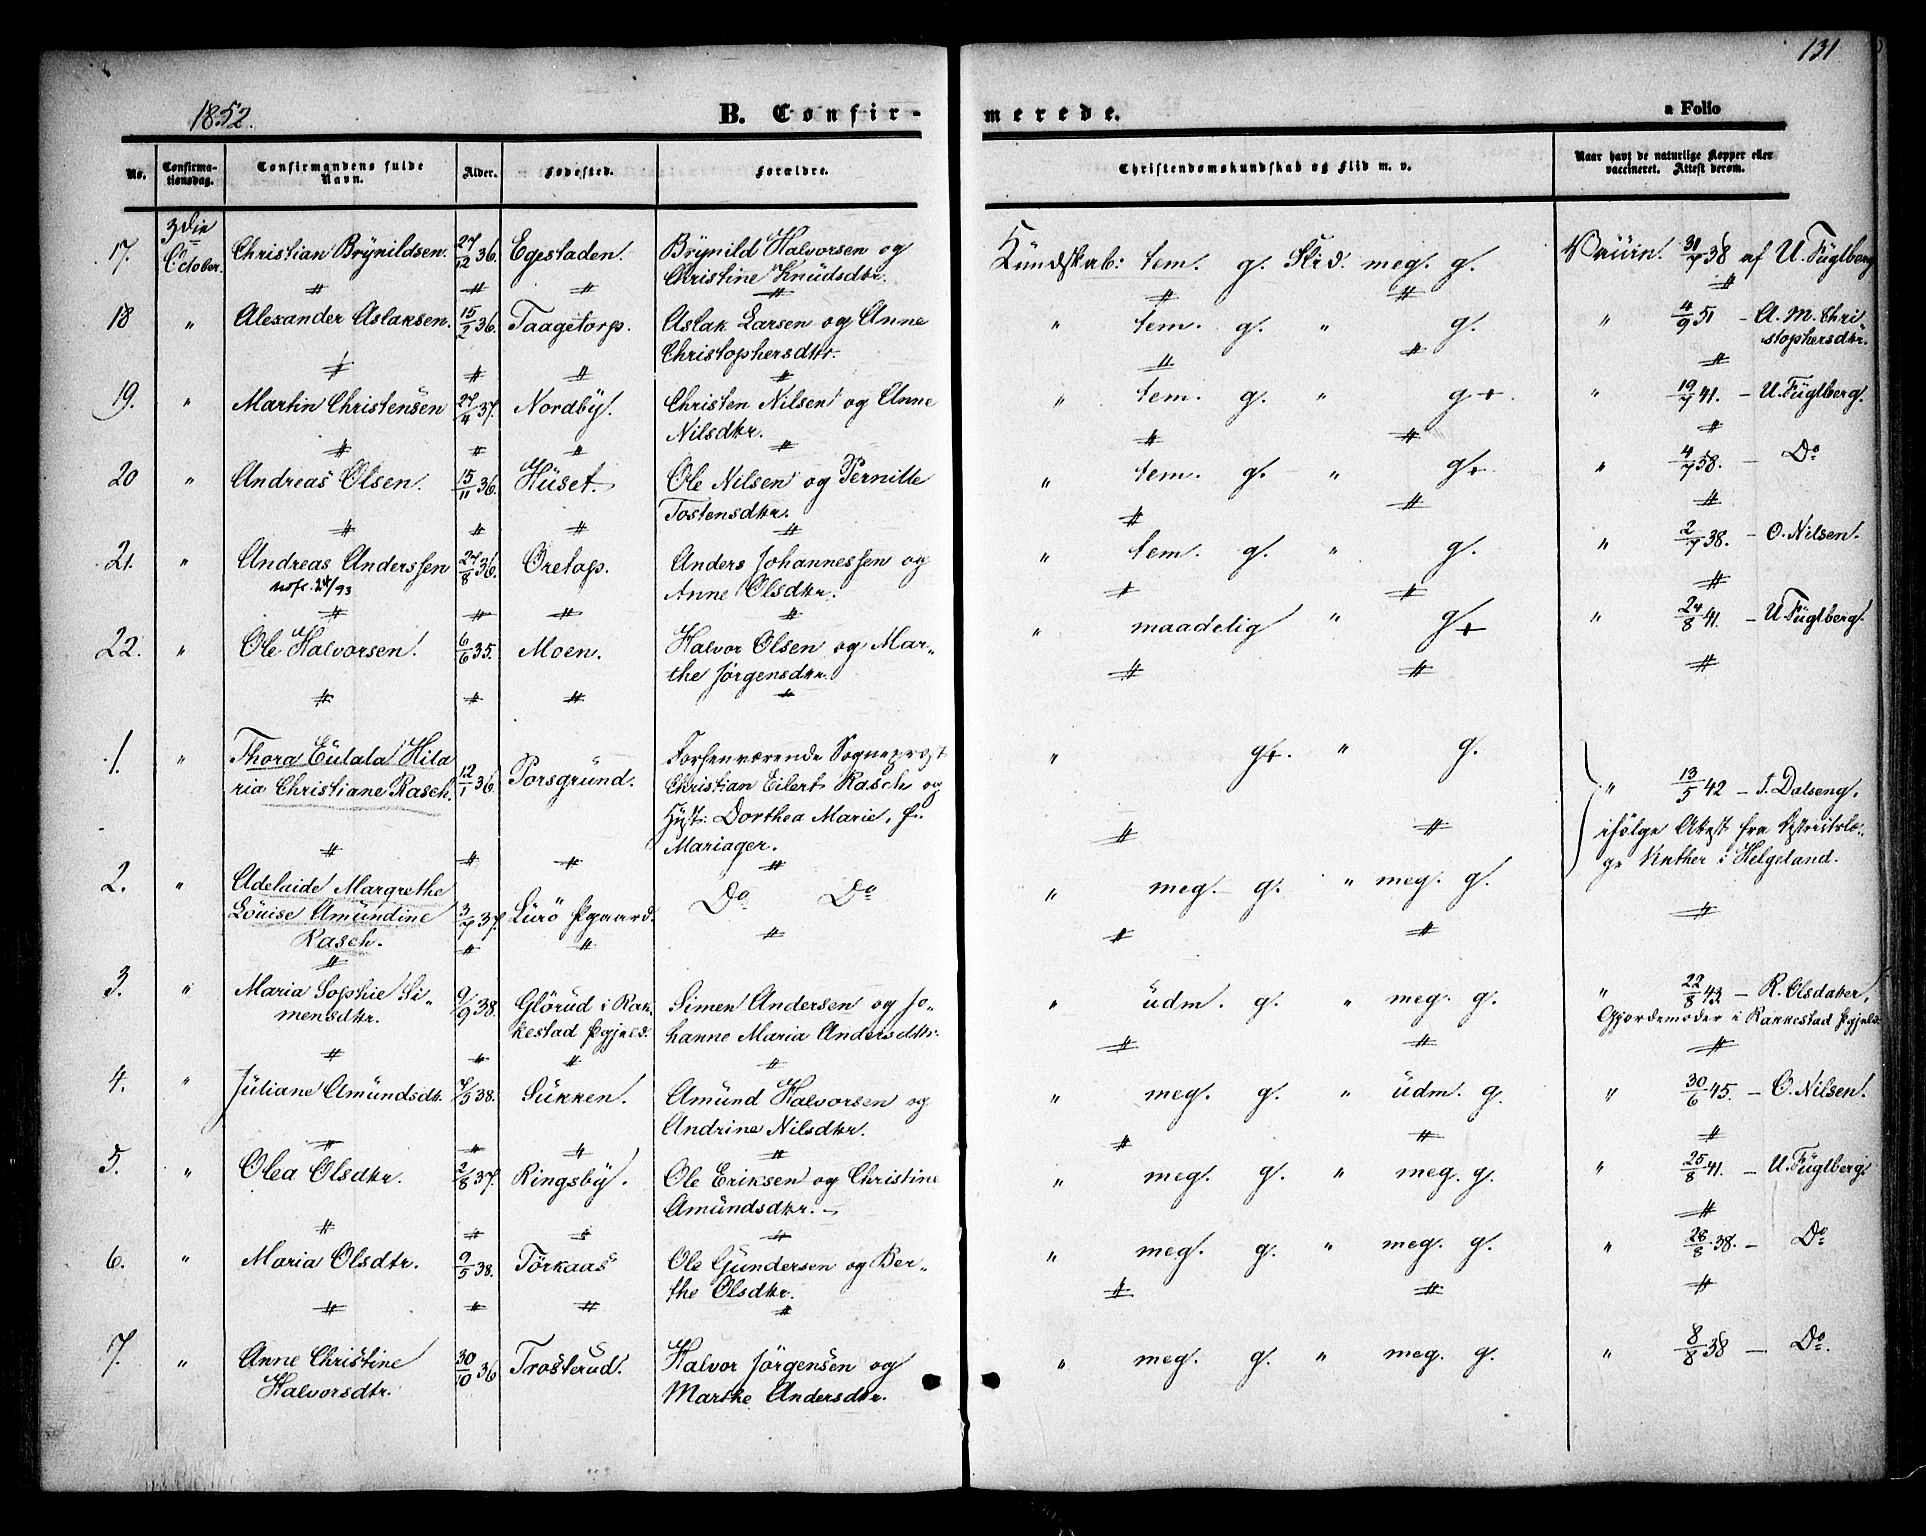 131
1852.
B. Confir-
merede.
a Folio
No.
Confirma-
tionsdag.
Confirmandens fulde
Navn.
Alder.
Fødested.
Forældre.
Christendomskundskab og Flid m. v.
Naar havt de naturlige Kopper eller
vaccineret. Attest derom.
3die
17. October. Christian Brynildsen. 27/12 36. Egestaden. Brynild Halvorsen og
Christine Knudsdtr.
Kundskab: tem. g. Flid. meg. g. Vaccin. 31/7 38 af U. Fuglberg
18 " Alexander Aslaksen. 15/2 36. Taagetorp. Aslak Larsen og Anne
Christophersdtr.
" tem. g. " g. " 4/9 51 – A. M. Chri
stophersdtr.
19. " Martin Christensen 27/4 37. Nordby. Christen Nilsen og Anne
Nilsdtr.
" tem. g. " g+. " 19/7 41. – U. Fuglberg.
20 " Andreas Olsen. 15/11 36. Huset. Ole Nilsen og Pernille
Tostensdtr.
" tem. g. " g+ " 4/7 38. – Do
21. " Andreas Anderssen 27/8 36. Oretop. Anders Johannessen og
Anne Olsdtr.
" tem. g. " g. " 2/7 38. – O. Nilsen.
22. " Ole Halvorsen. 6/6 35. Moen. Halvor Olsen og Mar-
the Jørgensdtr.
" maadelig " g+ " 24/8 41. – U Fuglberg.
1. " Thora Eulala Hila
ria Christiane Rasch. 12/1 36. Porsgrund. Forhenværende Sogneprest
Christian Eilert Rasch og
Hust: Dorthea Marie, f.
Mariager.
" g+. " g. " 13/5 42 – J. Dalseng,
ifölge Attest fra Distriktslæ-
ge i Helgeland.
2. " Adelaide Margrethe
Louise Amundine
Rasch. 3/7 37. Lurö Pgaard. Do Do
" meg. g. " meg. g.
3. " Maria Sophie Si-
mensdtr. 9/9 38. Glörud i Rak-
kestad Pgjeld. Simen Andersen og Jo-
hanne Maria Andersdtr.
" udm. g. " meg. g. " 22/8 43. – R. Olsdatter,
Gjordemoder i Rakkestad Pgjeld.
4. " Juliane Amundsdtr. 7/5 38. Sukken. Amund Halvorsen og
Andrine Nilsdtr.
" meg. g. " udm. g. " 30/6 45. – O. Nilsen.
5. " Olea Olsdtr. 2/8 37. Ringsby. Ole Eriksen og Christine
Amundsdtr. –
" meg. g. " meg. g. " 25/8 41. – U. Fuglberg.
6. " Maria Olsdtr. 9/5 38. Törkaas Ole Gundersen og Ber-
the Olsdtr.
" meg. g. " meg. g. " 28/8 38. – Do
7. " Anne Christine
Halvorsdtr. 30/10 36 Trosterud. Halvor Jørgensen og
Marthe Andersdtr.
" meg. g. " meg. g. " 8/8 38 – Do.